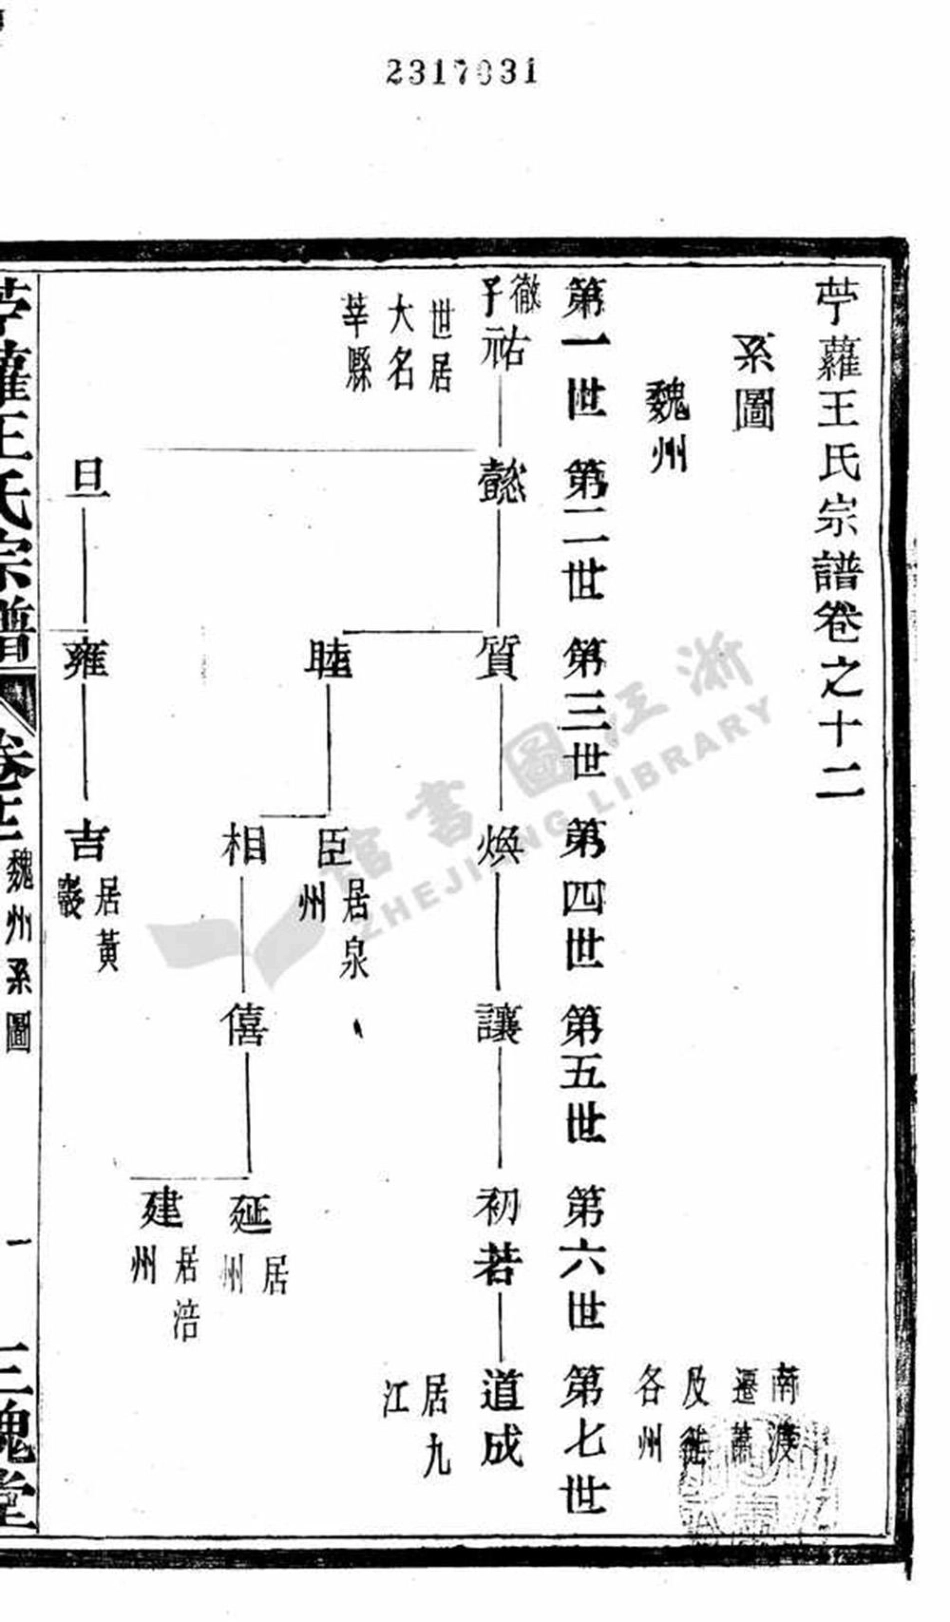 2317031
苧蘿王氏宗譜卷之十二
系圖
魏州
南渡
遷蕭
及徙
各州
第一世
第二世
第三世
第四世
第五世
第六世
第七世
徹子
祐
世居
大名
莘縣
懿
質
煥
讓
初若
道成
居九
江
睦
臣
居泉
州
相
僖
延
居
州
建
居涪
州
旦
雍
吉
居黃
巖
苧蘿王氏宗譜
卷十二
魏州系圖
一
三槐堂
浙江圖書館
ZHEJIANG LIBRARY